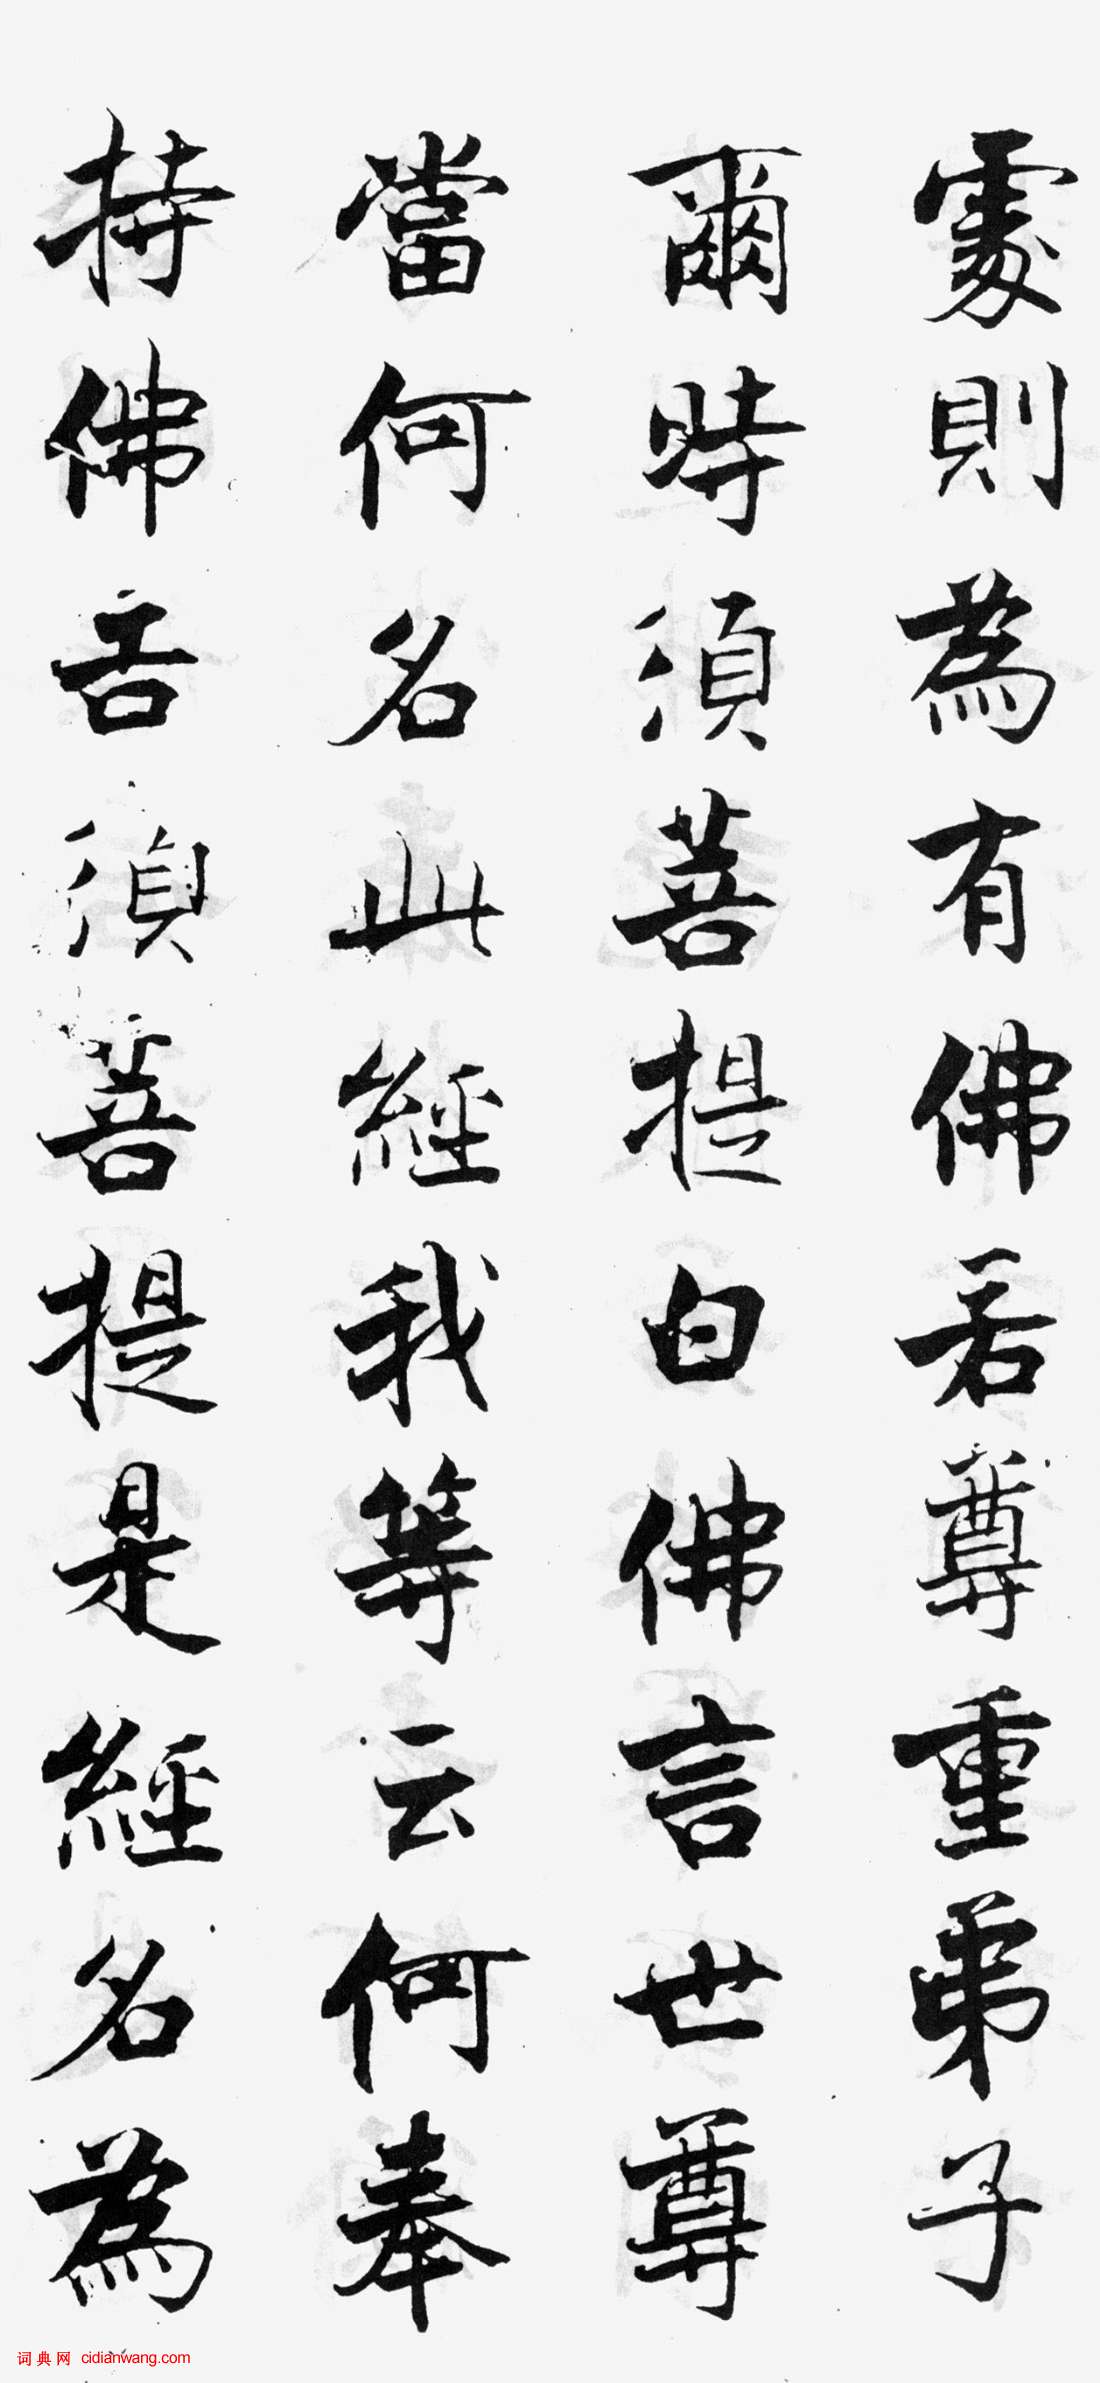 處則為有佛若尊重弟子
爾時須菩提白佛言世尊
當何名此經我等云何奉
持佛告須菩提是經名為
词典网 cidianwang.com